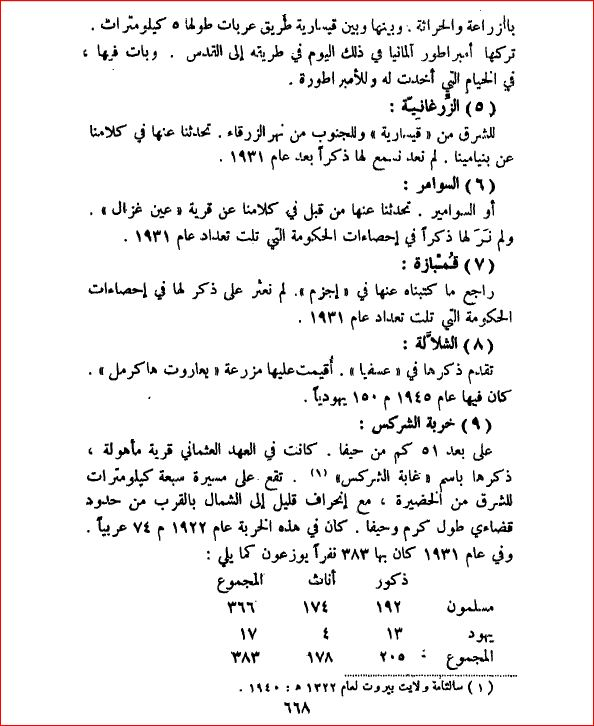 باالزراعة والحراثة . وبينها وبين قيسارية طريق عربات طولها ٥ كيلومترات .
تركها أمبراطور آلمانيا في ذلك اليوم في طريقه إلى القدس . وبات فيها ،
في الخيام التي أخدت له وللأمبراطورة .
( ٥ ) الزُّرغانيـّة :
للشرق من « قيسارية » وللجنوب من نهر الزرقاء . تحدثنا عنها في كلامنا
عن بنيامينا . لم نعد نسمع لها ذكراً بعد عام ١٩٣١ .
( ٦ ) السوامر :
أو السوامير . تحدثنا عنها من قبل في كلامنا عن قرية « عين غزال » .
ولم نـَرَ لها ذكراً في إحصاءات الحكومة التي تلت تعداد عام ١٩٣١ .
( ٧ ) قُمـْبازة :
راجع ما كتبناه عنها في « إجزم ». لم نعثر على ذكر لها في إحصاءات
الحكومة التي تلت تعداد عام ١٩٣١ .
( ٨ ) الشلاَّلة :
تقدم ذكرها في « عسفيا » . أُقيمت عليها مزرعة « يعاروت هاكرمل » .
كان فيها عام ١٩٤٥ م ١٥٠ يهودياً .
( ٩ ) خربة الشركس :
على بعد ٥١ كم من حيفا . كانت في العهد العثماني قرية مأهولة ،
ذكرها باسم « غابة الشركس» (١) . تقع على مسيرة سبعة كيلومترات
للشرق من الخضيرة ، مع إنحراف قليل إلى الشمال بالقرب من حدود
قضاءي طول كرم وحيفا . كان في هذه الخربة عام ١٩٢٢ م ٧٤ عربياً .
وفي عام ١٩٣١ كان بها ٣٨٣ نفراً يوزعون كما يلي :
ذكور أناث المجموع
مسلمون ١٩٢ ١٧٤ ٣٦٦
يهود ١٣ ٤ ١٧
المجموع : ٢٠٥ ١٧٨ ٣٨٣
( ١ ) سالنامة ولايت بيروت لعام ١٣٢٢ ه : ١٩٤٠ .
٦٦٨